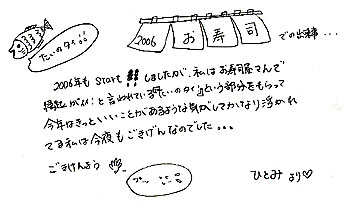 たいのタイ!!
2006 お寿司 での出来事...
2006年も START!! しましたが、私はお寿司屋さんで
縁起がイイ と言われている"たいのタイ"という部分をもらって
今年はきっといいことがあるような気がしてかなり浮かれ
てる私は今夜もごきげんなのでした...
ごきげんよう
ひとみ より♡